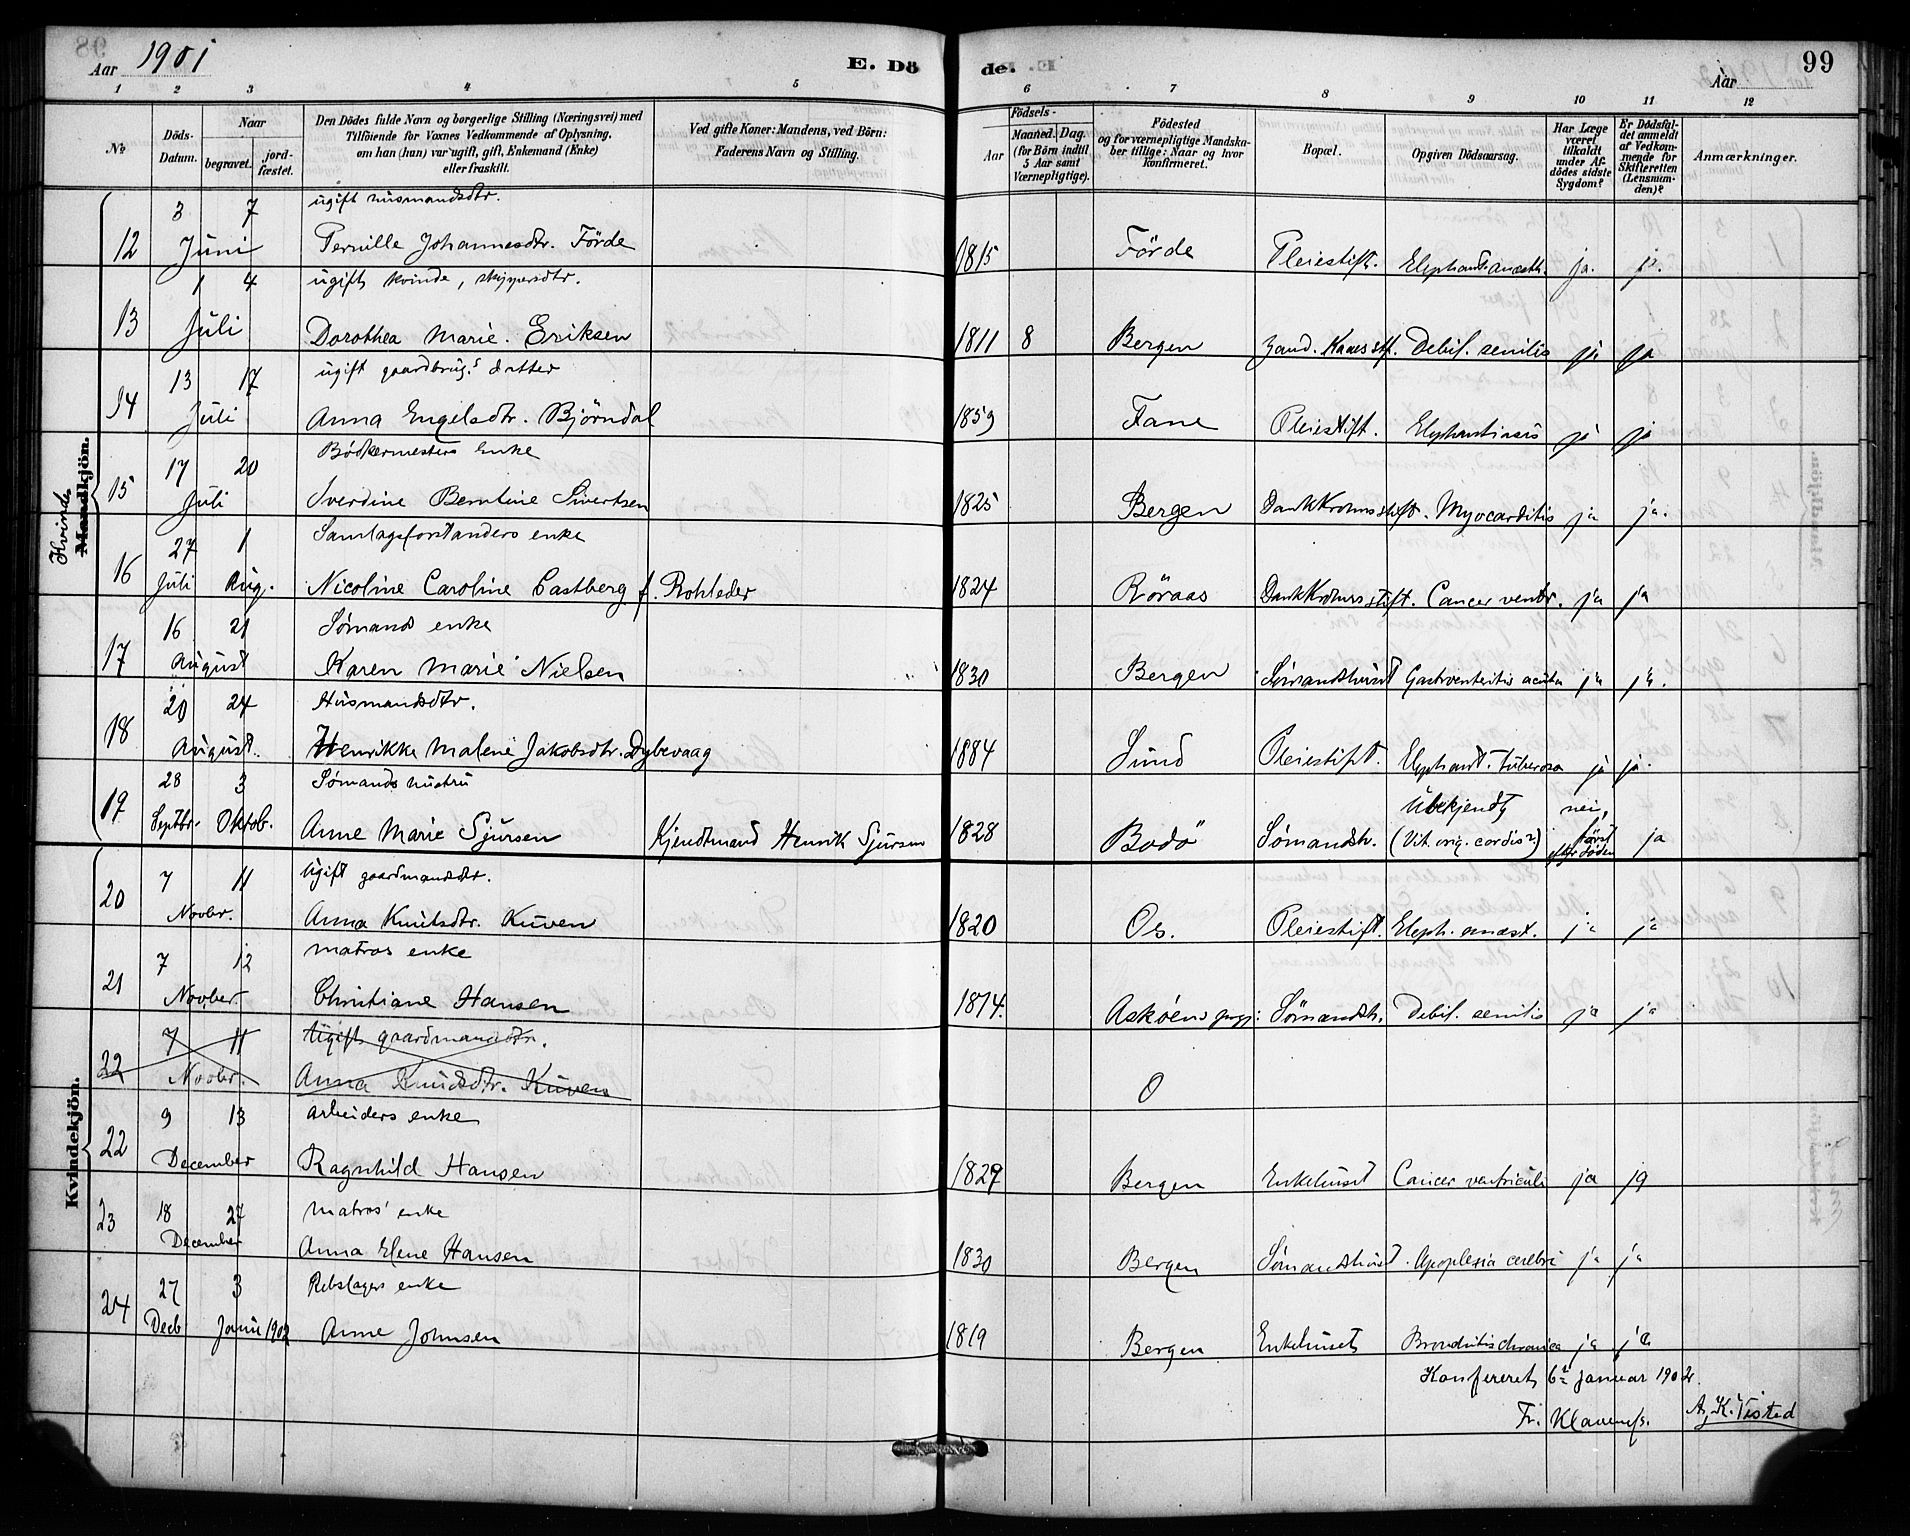 98
Aar 1901
E. Dö
de.
99
Aar
1 2 3 4 5 6 7 8 9 10 11 12
No
Döds-Datum.
Naar
begravet.
jord-fæstet.
Den Dödes fulde Navn og borgerlige Stilling (Næringsvei) med
Tilföiende for Voxnes Vedkommende af Oplysning,
om han (hun) var ugift, gift, Enkemand (Enke)
eller fraskilt.
Ved gifte Koner: Mandens, ved Börn:
Faderens Navn og Stilling.
Födsels-
Aar
Maaned. Dag.
(for Börn indtil
5 Aar samt
Værnepligtige).
Födested
og for værnepligtige Mandska-
ber tillige: Naar og hvor
konfirmeret.
Bopæl.
Opgiven Dödsaarsag.
Har Læge
været
tilkaldt
under Af-
dödes sidste
Sygdom?
Er Dödsfal-
det anmeldt
af Vedkom-
mende for
Skifteretten
(Lensman-
den)?
Anmærkninger.
Kvinde
Mandkjön.
3 7 ugift husmandsdtr.
12 Juni Pernille Johannesdtr. Förde 1815 Förde Pleiestift. Elephant. anæsth. ja. ja.
1 4 ugift kvinde, skippersdtr.
13 Juli Dorothea Marie. Eriksen 1811 8 Bergen Zand. Kaaes stf. Debil. senilis ja ja
13 17 ugift gaardbrug.s datter
14 Juli Anna Engelsdtr. Björndal 1859 Fane Pleiestift. Elephantiasis ja ja
17 20 Bödkermesters Enke
15 Juli Sverdine Berntine Sivertsen 1825 Bergen Dankkrohns stift. Myocarditis ja ja.
27 1 Samlagsforstanders enke
16 Juli Aug. Nicoline Caroline Castberg f. Rohleder 1824 Röraas Dankkrohns stift. Cancer ventr. ja ja
16 21 Sømands enke
17 August Karen Marie Nielsen 1830 Bergen Sømandshuset Gastroenteritis acuta ja ja.
20 24 Husmandsdtr.
18 August. Henrikke Malene Jakobsdtr. Dybevaag 1884 Sund Pleiestift. Elephant. tuberosa ja ja.
28 3 Sømands hustru Ubekjendt nei,
19 Septbr. Oktob. Anne Marie Sjursen Kjendtmand Henrik Sjursen 1828 Bodö Sømandsh. (Vit. org. cordis?) først efter döden ja
Kvindekjön.
7 11 Ugift gaardmandsdtr.
20 Novbr. Anna Knutsdtr. Kuven 1820 Os. Pleiestift. Eleph. anæst. ja ja
7 12 matros enke
21 Novber. Christiane Hansen 1814. Askøens prgj: Sømandsh. Debil. senilis ja ja
7 11 Ugift gaardmandsdtr.
22 Novbr. Anna Knudsdtr. Kuven O
9 13 arbeiders enke
22 December Ragnhild Hansen 1829 Bergen Enkehuset Cancer ventriculi ja ja
18 24 matros' enke
23 December Anna Elene Hansen 1830 Bergen Sømandshuset. Apoplexia cerebri ja ja
27 3 Rebslagers enke
24 Decb Janu 1902 Anne Johnsen 1819 Bergen Enkehuset Bronchitis chronica ja ja
Konfereret 6te januar 1902.
Fr. Klaveness. A. K. Visted